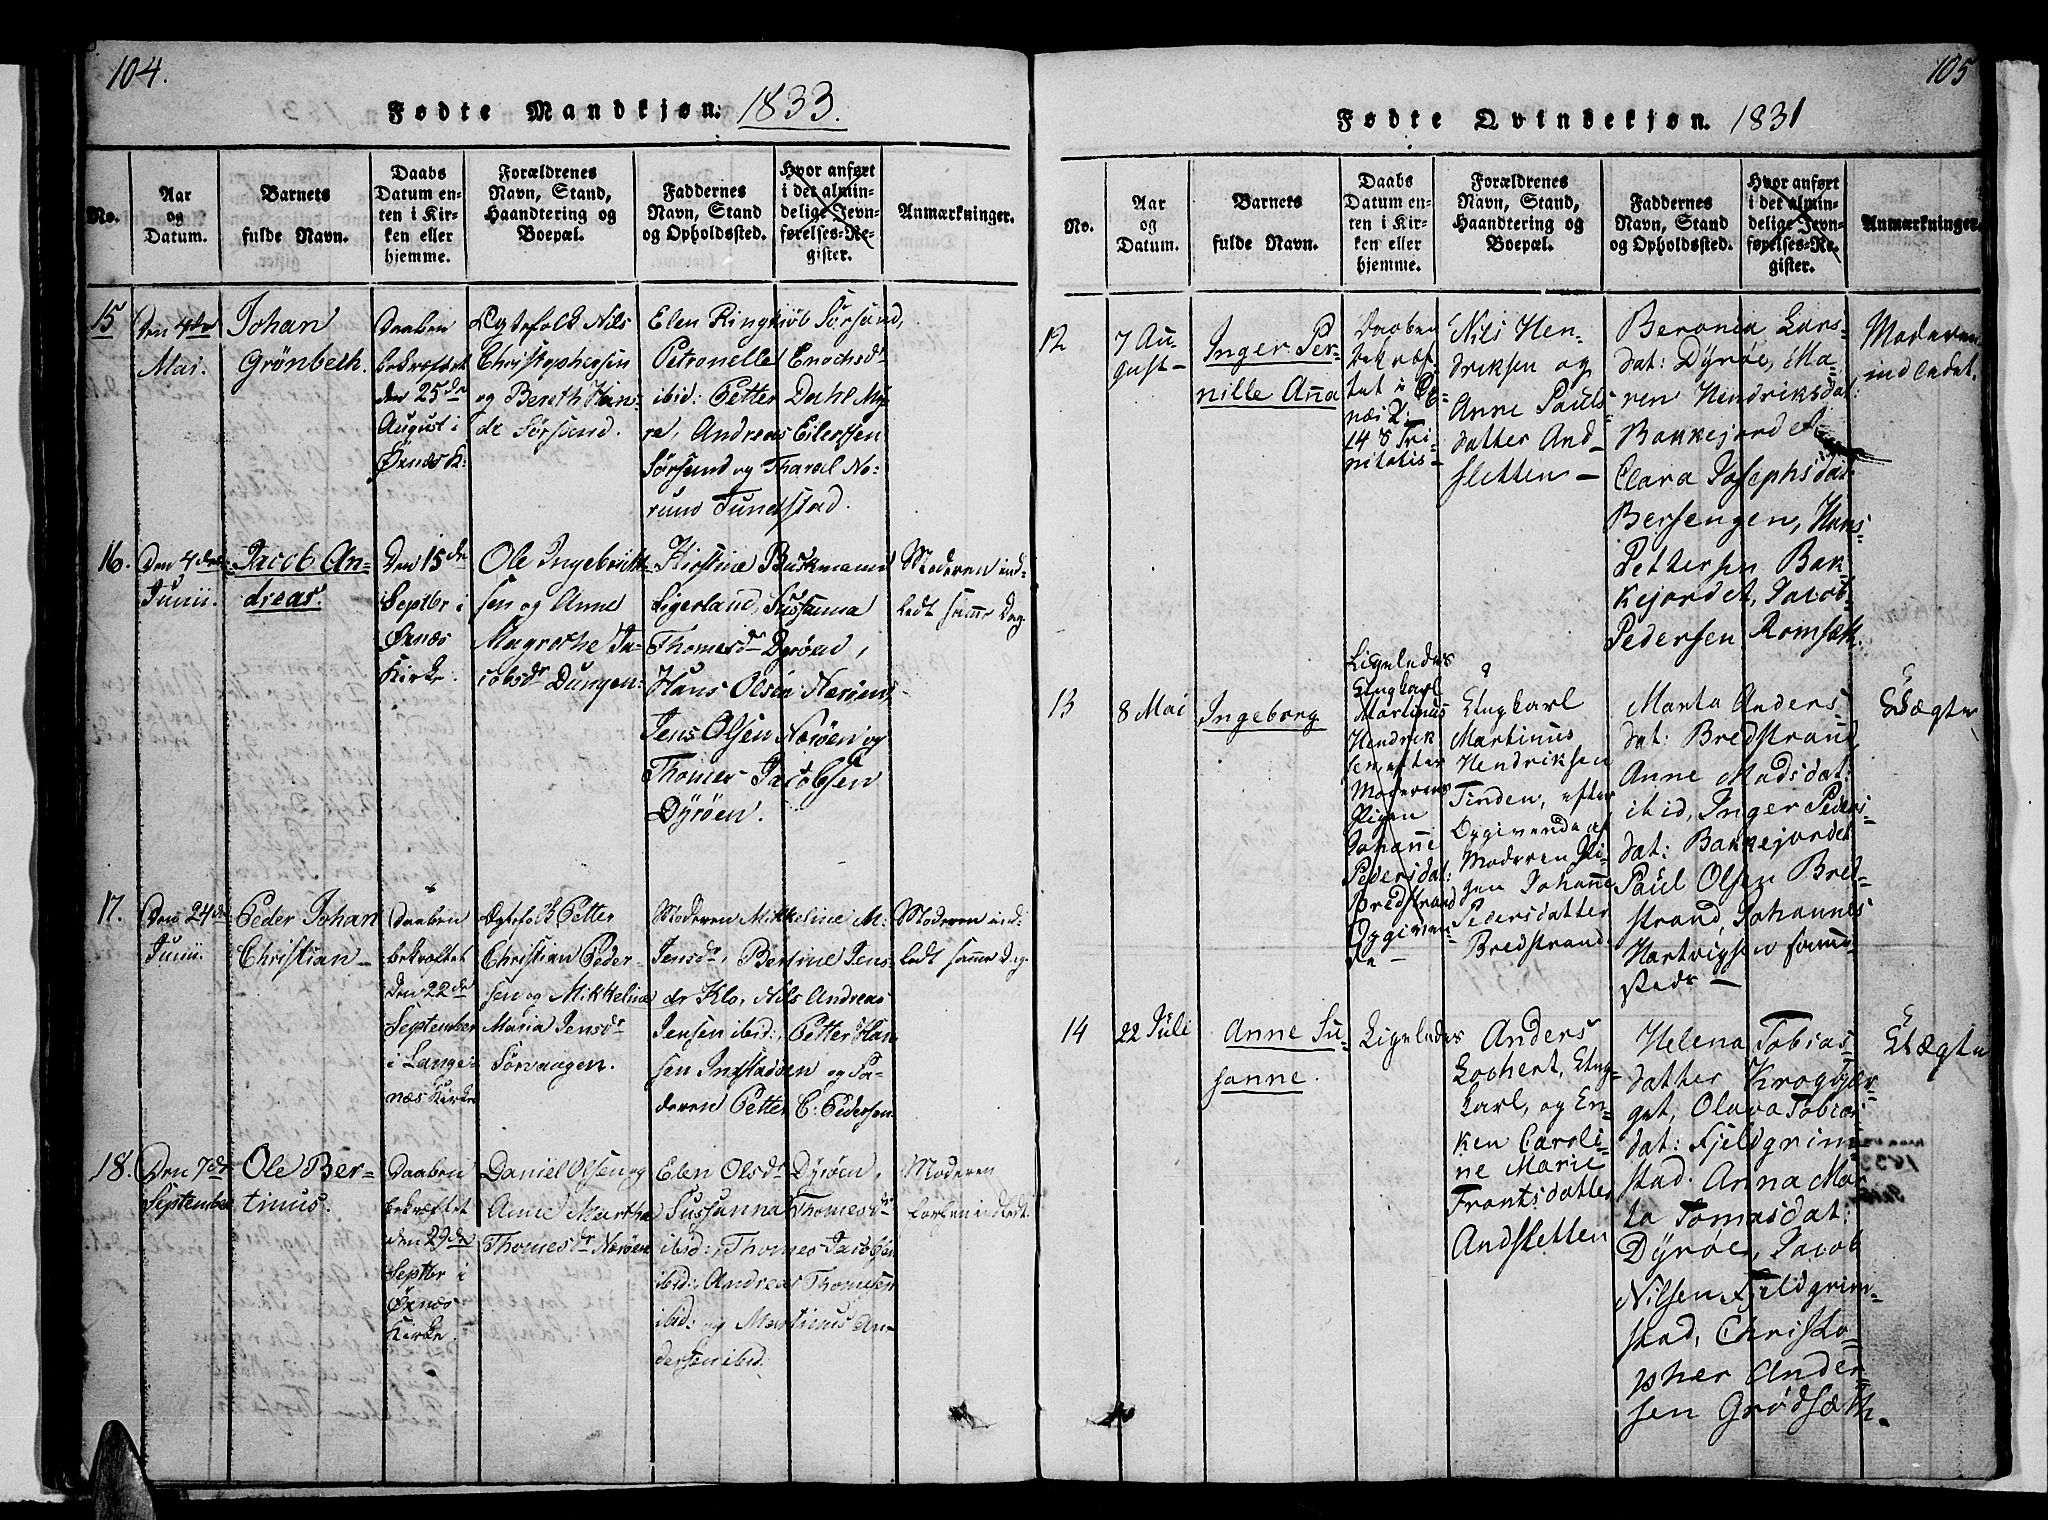 104.
Fødte Mandkjøn. 1833.
No.
Aar
og
Datum.
Barnets
fulde Navn.
Daabs
Datum en-
ten i Kir-
ken eller
hjemme.
Forældrenes
Navn, Stand,
Haandtering og
Boepæl.
Faddernes
Navn, Stand
og Opholdssted.
Hvor anført
i det almin-
delige Jevn-
førelses-Re-
gister.
Anmærkninger.
15
Den 4de
Mai.
Johan
Grönbeth.
Daaben
bekræftet
den 25de
August i
Øxnes K:
Ægtefolk Nils
Christophersen
og Bereth Han-
dr Sörsund.
Elen Ringkjöb Sörsund,
Petronelle Enochsdr
ibid: Petter Dahl My-
re, Andreas Eilertsen
Sörsund og Tharal No-
rund Tundstad.
16.
Den 4de
Junii.
Jacob An-
dreas.
Den 15de
Septbr i
Øxnæs
Kirke.
Ole Ingebrikt-
sen og Anne
Magrethe Ja-
cobsdr Dungen.
Kirstine Buskmand
Ligerland, Sussanna
Thomesdr Dyröen,
Hans Olsen Næröen,
Jens Olsen Næröen og
Thomes Jacobsen
Dyröen.
Moderen ind-
ledt samme Dag
17.
Den 24de
Junii.
Peder Johan
Christian
Daaben
bekræftet
den 22de
September
i Lange-
næs Kirke
Ægtefolk Petter
Christian Peder-
sen og Mikkeline
Maria Jensdr
Sörvaagen.
Moderen Mikkeline M:
Jensdr, Bertine Jens-
dr Klo, Nils Andreas
Jensen ibid:, Petter Han-
sen Ingstadsen og Fa-
deren Petter C: Pedersen.
Moderen ind-
ledt samme Dag.
18.
Den 7de
September
Ole Ber-
tinus.
Daaben
bekræftet
den 29de
Septbr i
Øxnæs
Kirke.
Daniel Olsen og
Anne Martha
Thomesdr Næröen
Elen Olsdr Dyröen,
Sussanna Thomesdr
ibid:, Thomes Jacobsen
ibid:, Andreas Thomesen
ibid: og Martinus An-
dersen ibid.
Moderen
indledt.
105
Fødte Qvindekjøn. 1831
No.
Aar
og
Datum.
Barnets
fulde Navn.
Daabs
Datum en-
ten i Kir-
ken eller
hjemme.
Forældrenes
Navn, Stand,
Haandtering og
Boepæl.
Faddernes
Navn, Stand
og Opholdssted.
Hvor anført
i det almin-
delige Jevn-
førelses-Re-
gister.
Anmærkninger.
12
7 Au-
gust
Inger Per-
nille Anna
Daaben
bekræf-
tet i Ø-
næs
14 S Tri-
nitatis
Nils Hen-
driksen og
Anne Pauls-
datter And-
sletten
Beronia Lars-
dat: Dÿröe, Ma-
ren Hendriksdat:
Bakkejordet
Clara Josephsdat:
Bersengen, Hans
Pettersen Bak-
kejordet, Jacob
Pedersen Romsæth.
Moderen
indledet.
13
8 Mai
Ingeborg
Ligeledes
Ungkarl
Martinus
Hendrik
sen efter
Moderens
Pigen
Johanne
Pedersdat:
Bredstrand
Opgiven-
de
Ungkarl
Martinus
Hendriksen
Tinden, efter
Opgivende af
Moderen Pi-
gen Johanne
Pedersdatter
Bredstrand.
Marta Anders
dat: Bredstrand,
Anne Madsdat:
ibid, Inger Peders
dat: Bakkejordet
Paul Olsen Bred-
strand, Johannes
Hartvigsen samme
stede
Uægte
14
22 Juli
Anne Su-
sanne.
Ligeledes
Anders
Lockert, Ung-
karl, og En-
ken Caroli-
ne Marie
Frantsdatter
Andsletten
Helena Tobias-
datter Krogbjer-
get, Olava Tobias
dat: Fjeldgrim-
stad. Anna Mar-
ta Tomasdat:
Dÿröe, Jacob
Nilsen Fjeldgrim-
stad, Christo-
pher Ander-
sen Grödsæth.
Uægte